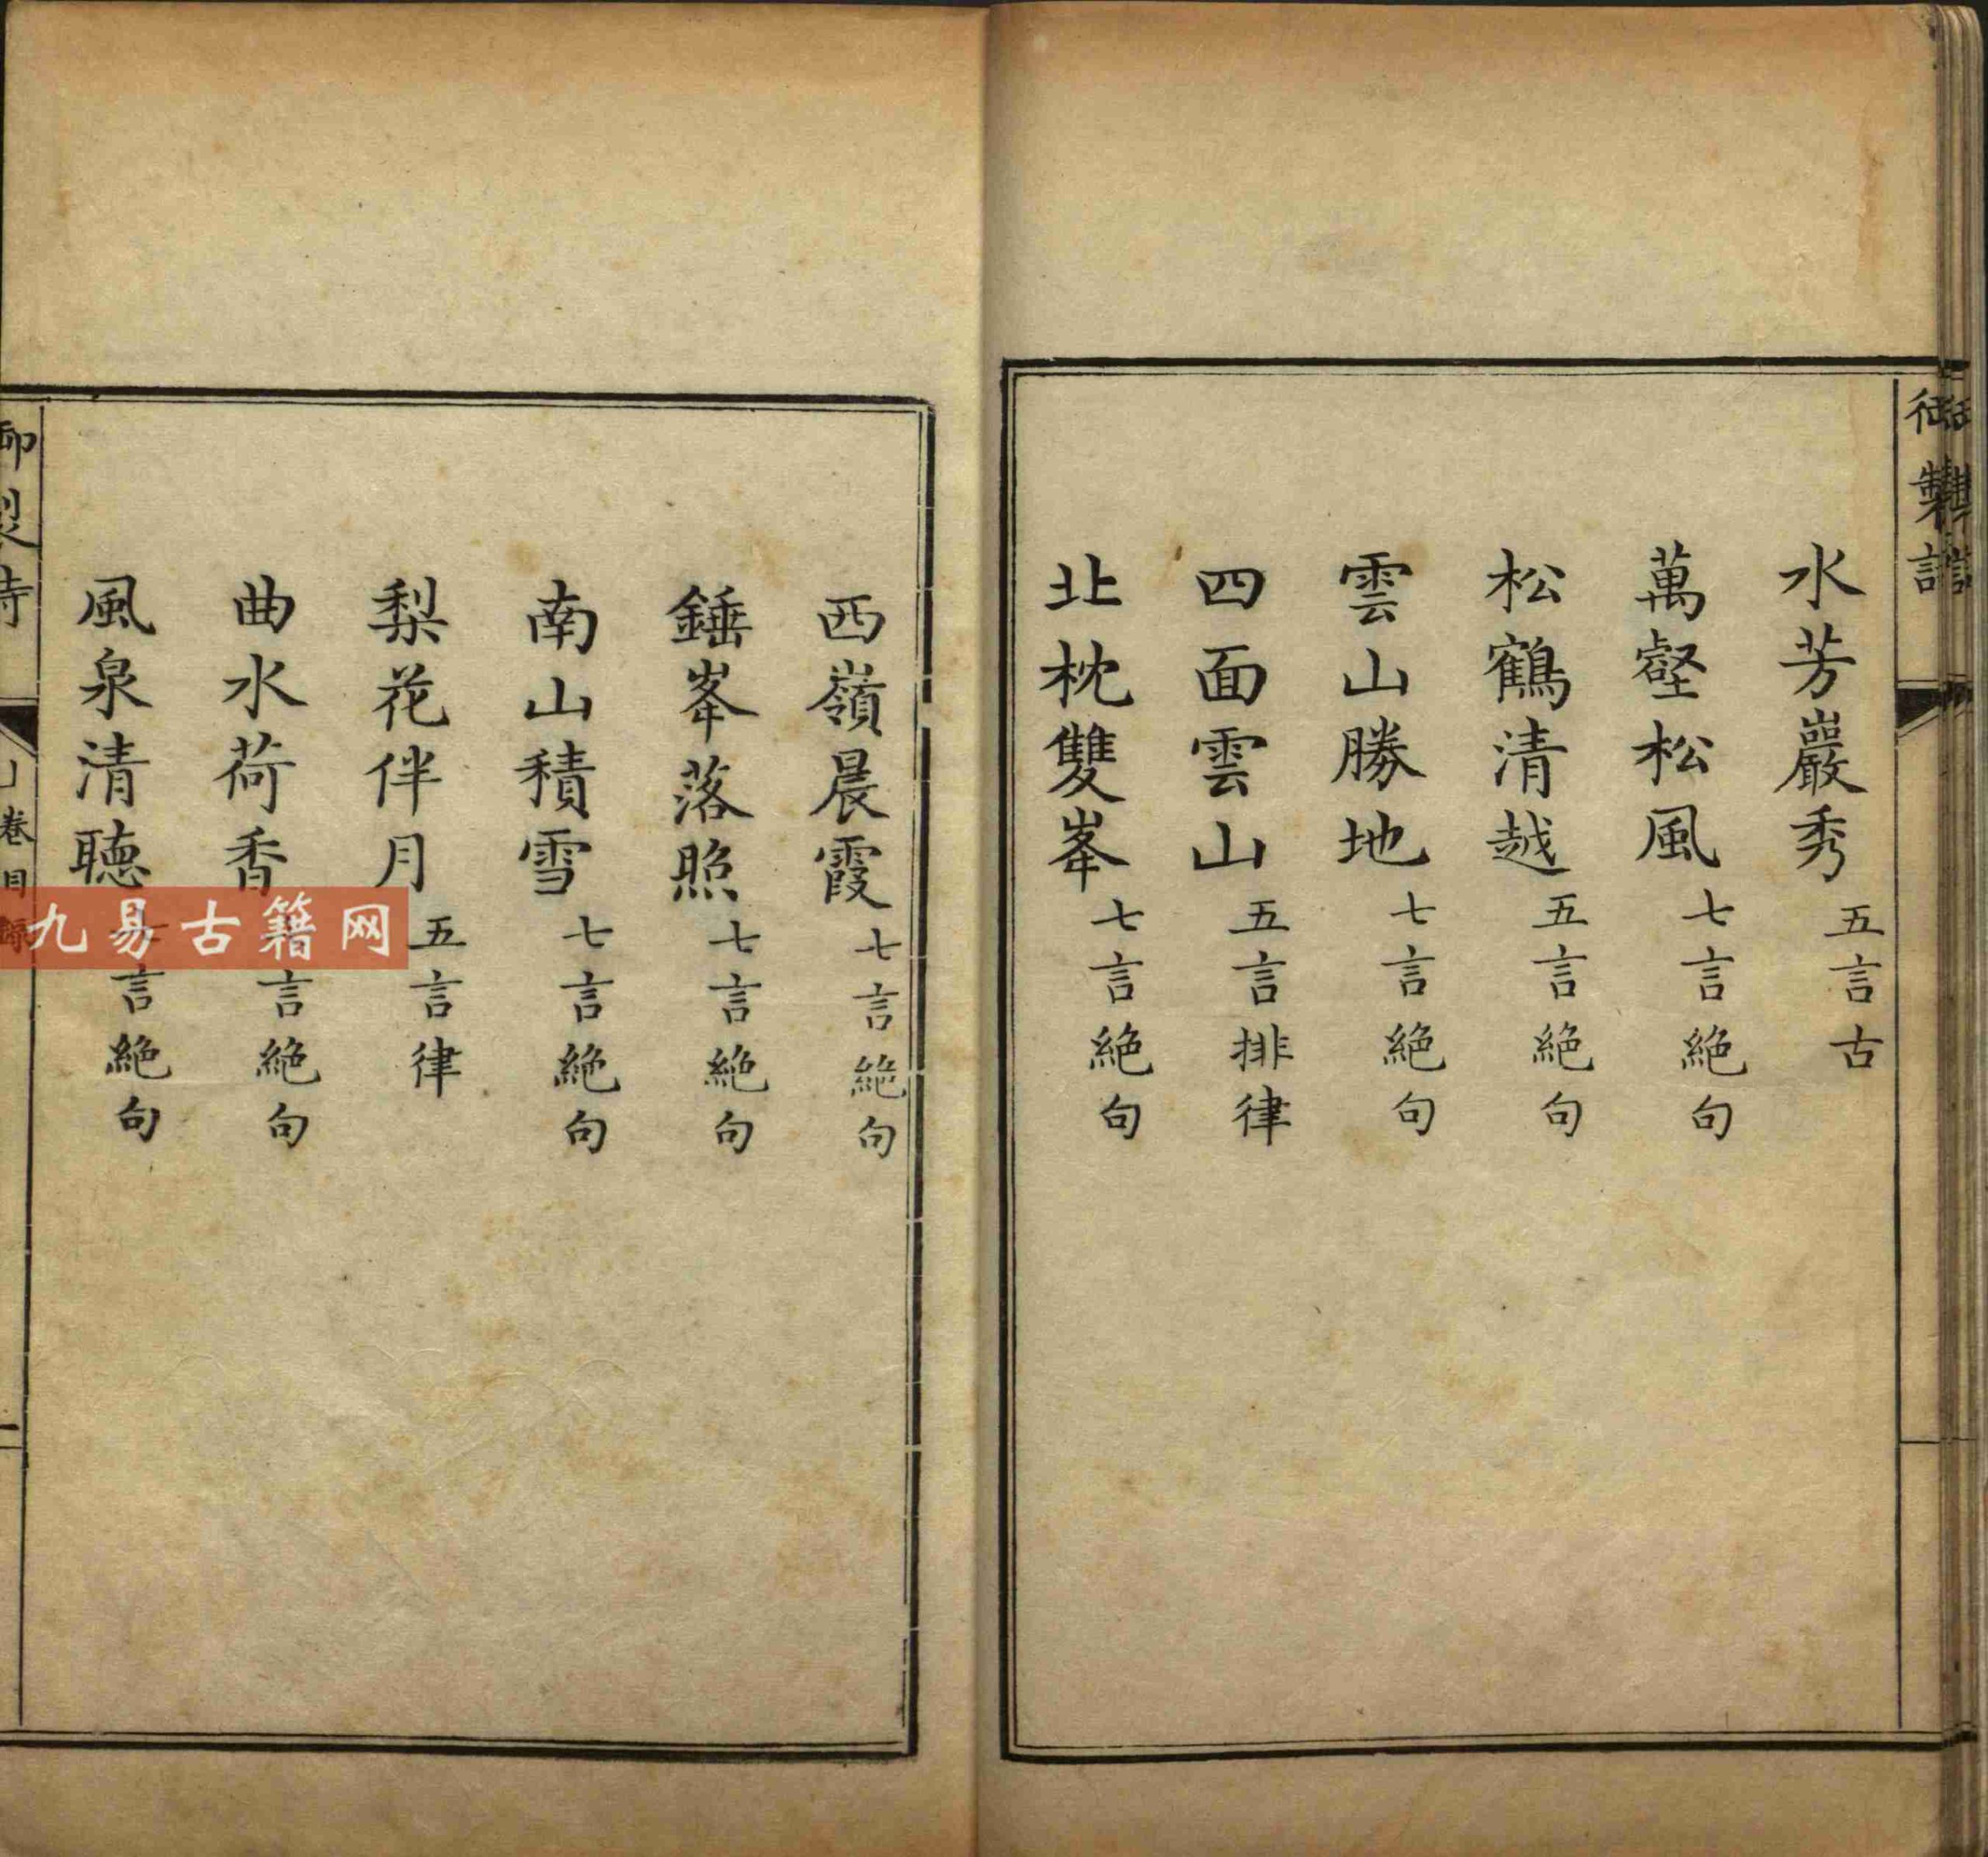 御製詩
水芳巖秀 五言古
萬壑松風 七言絶句
松鶴清越 五言絶句
雲山勝地 七言絶句
四面雲山 五言排律
北枕雙峯 七言絶句
西嶺晨霞 七言絶句
錘峯落照 七言絶句
南山積雪 七言絶句
梨花伴月 五言律
曲水荷香 言絶句
風泉清聽 言絶句
卷目
九易古籍网